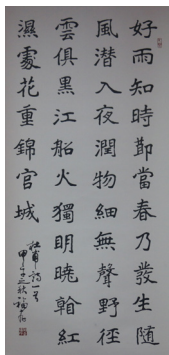 好雨知時節當春乃發生隨
風潜入夜潤物細無聲野徑
雲俱黑江船火獨明曉看紅
濕處花重錦官城
杜甫詩一首